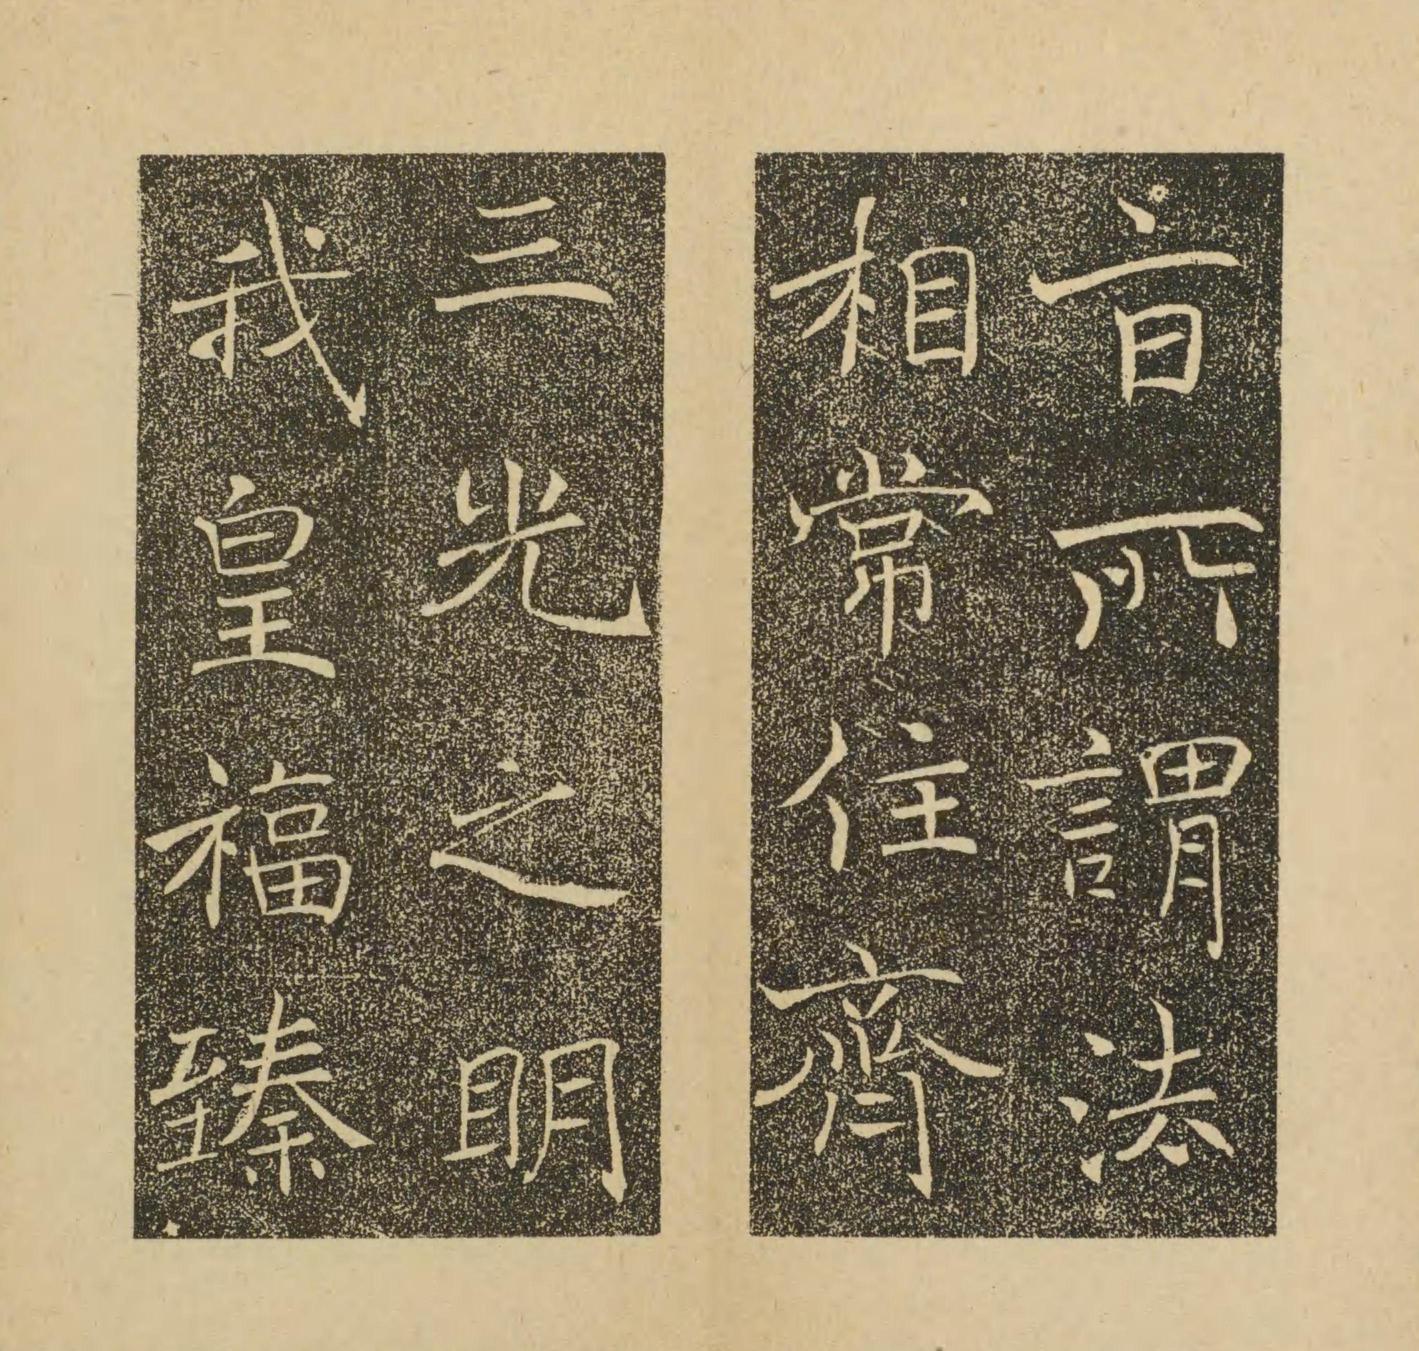 旨所謂法
相常住齊
三光之明
我皇福臻